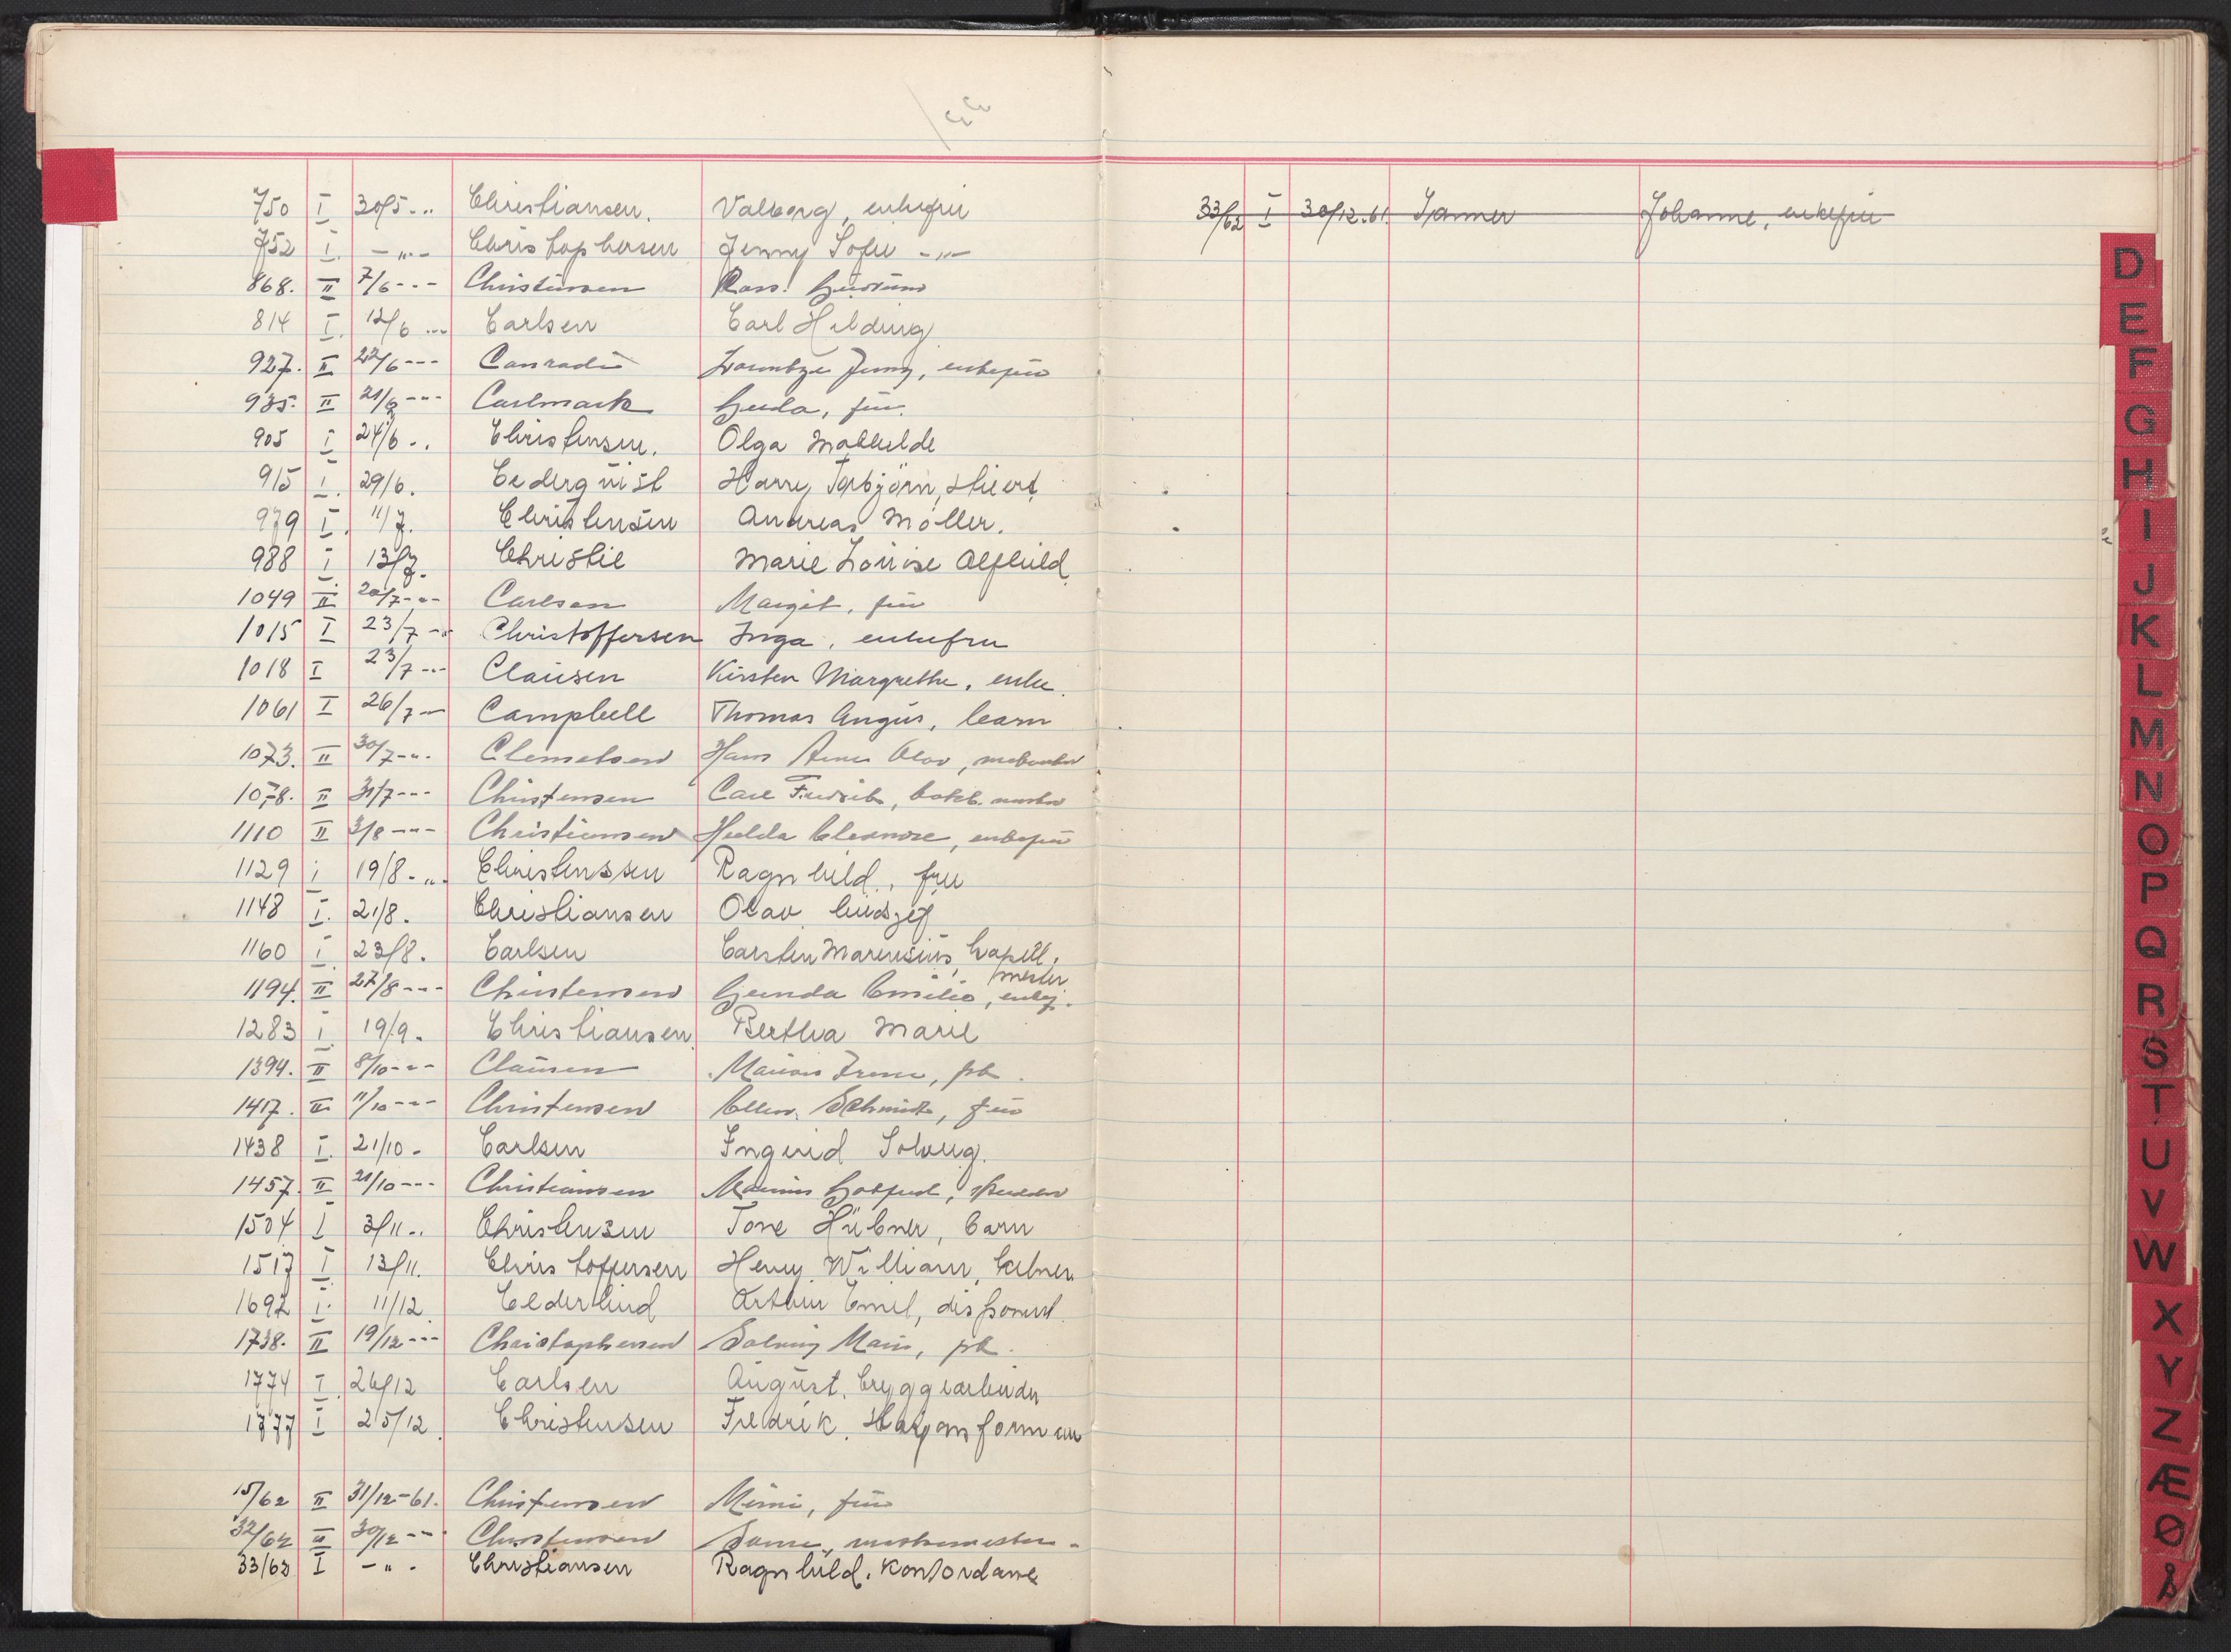 750 I 30/5 - „ Christiansen. Valborg, enkefru
752 I. - „ - Christophersen Jenny Sofie - „ -
868. II 7/6 - „ - Christensen Gudrun
814 I. 12/6 - „ - Carlsen Carl Hilding
927. II 22/6 - „ - Conradi Jenny, enkefru
935. II 21/6 - „ - Carlmark Gerda, fru.
905 I 24/6 - „ Christensen. Olga Mathilde
915 I. 29/6. Cederqvist Harry Torbjörn,
979 I. 11/7. Christensen Andreas Möller.
988 I 13/7. Christie Marie Louise Alfhild
1049 II 20/7 - „ - Carlsen Margit, fru
1015 I 23/7 - „ Christoffersen Inga, enkefru
1018 I 23/7 - „ - Clausen Kirsten Margrethe, enke.
1061 I 26/7 - „ Campbell Thomas Angus, barn
1073. II 30/7 - „ - Clemetsen Hans Arne Olav,
1078. II 31/7 - „ - Christensen Carl Fredrik,
1110 II 3/8 - „ - Christiansen Hulda Eleonore, enkefru
1129 I 19/8 - „ - Christenssen Ragnhild, fru
1148 I. 21/8. Christiansen Olav,
1160 I 23/8. Carlsen Carsten Marensius, kapell.
mester
1194. II 27/8 - „ - Christensen Gunda Emilie, enkef.
1283 I. 19/9. Christiansen Bertha Marie
1394. II 8/10 - „ - Clausen Irene, frk.
1417. II 11/10 - „ - Christensen Ellen Schmidt, fru
1438 I. 21/10 - Carlsen Ingerid Solveig.
1457. II 21/10 - „ - Christiansen
1504 I 3/11 - „ Christensen Tove Hübner, barn
1517 I 13/11. Christoffersen Henry William, kelner
1692 I. 11/12. Cederlund Arthur Emil, disponent.
1738. II 19/12 - „ - Christophersen Solveig Marie, frk.
1774 I. 26/12 Carlsen August, bryggearbeider
1777 I 25/12. Christensen Fredrik,
15/62 II 31/12-61. Christensen Mimi, fru
32/62 II 30/12 - „ - Christensen
33/62 I - „ - Christiansen Ragnhild. Kontordame
33/62 I 30/12.61. Johanne, enkefru
D
E
F
G
H
I
J
K
L
M
N
O
P
Q
R
S
T
U
V
W
X
Y
Z
Æ
Ø
Å